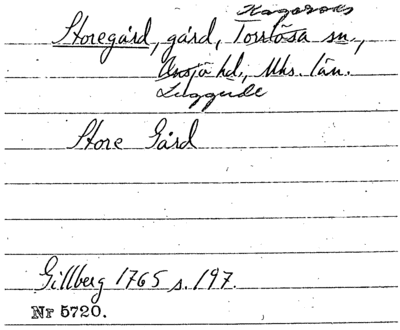 Kagaröds
Storegård, gård, Torrlösa sn.,
Onsjö hd., Mhs. län.
Luggude
Store Gård
Gillberg 1765 s. 197.
Nr 5720.